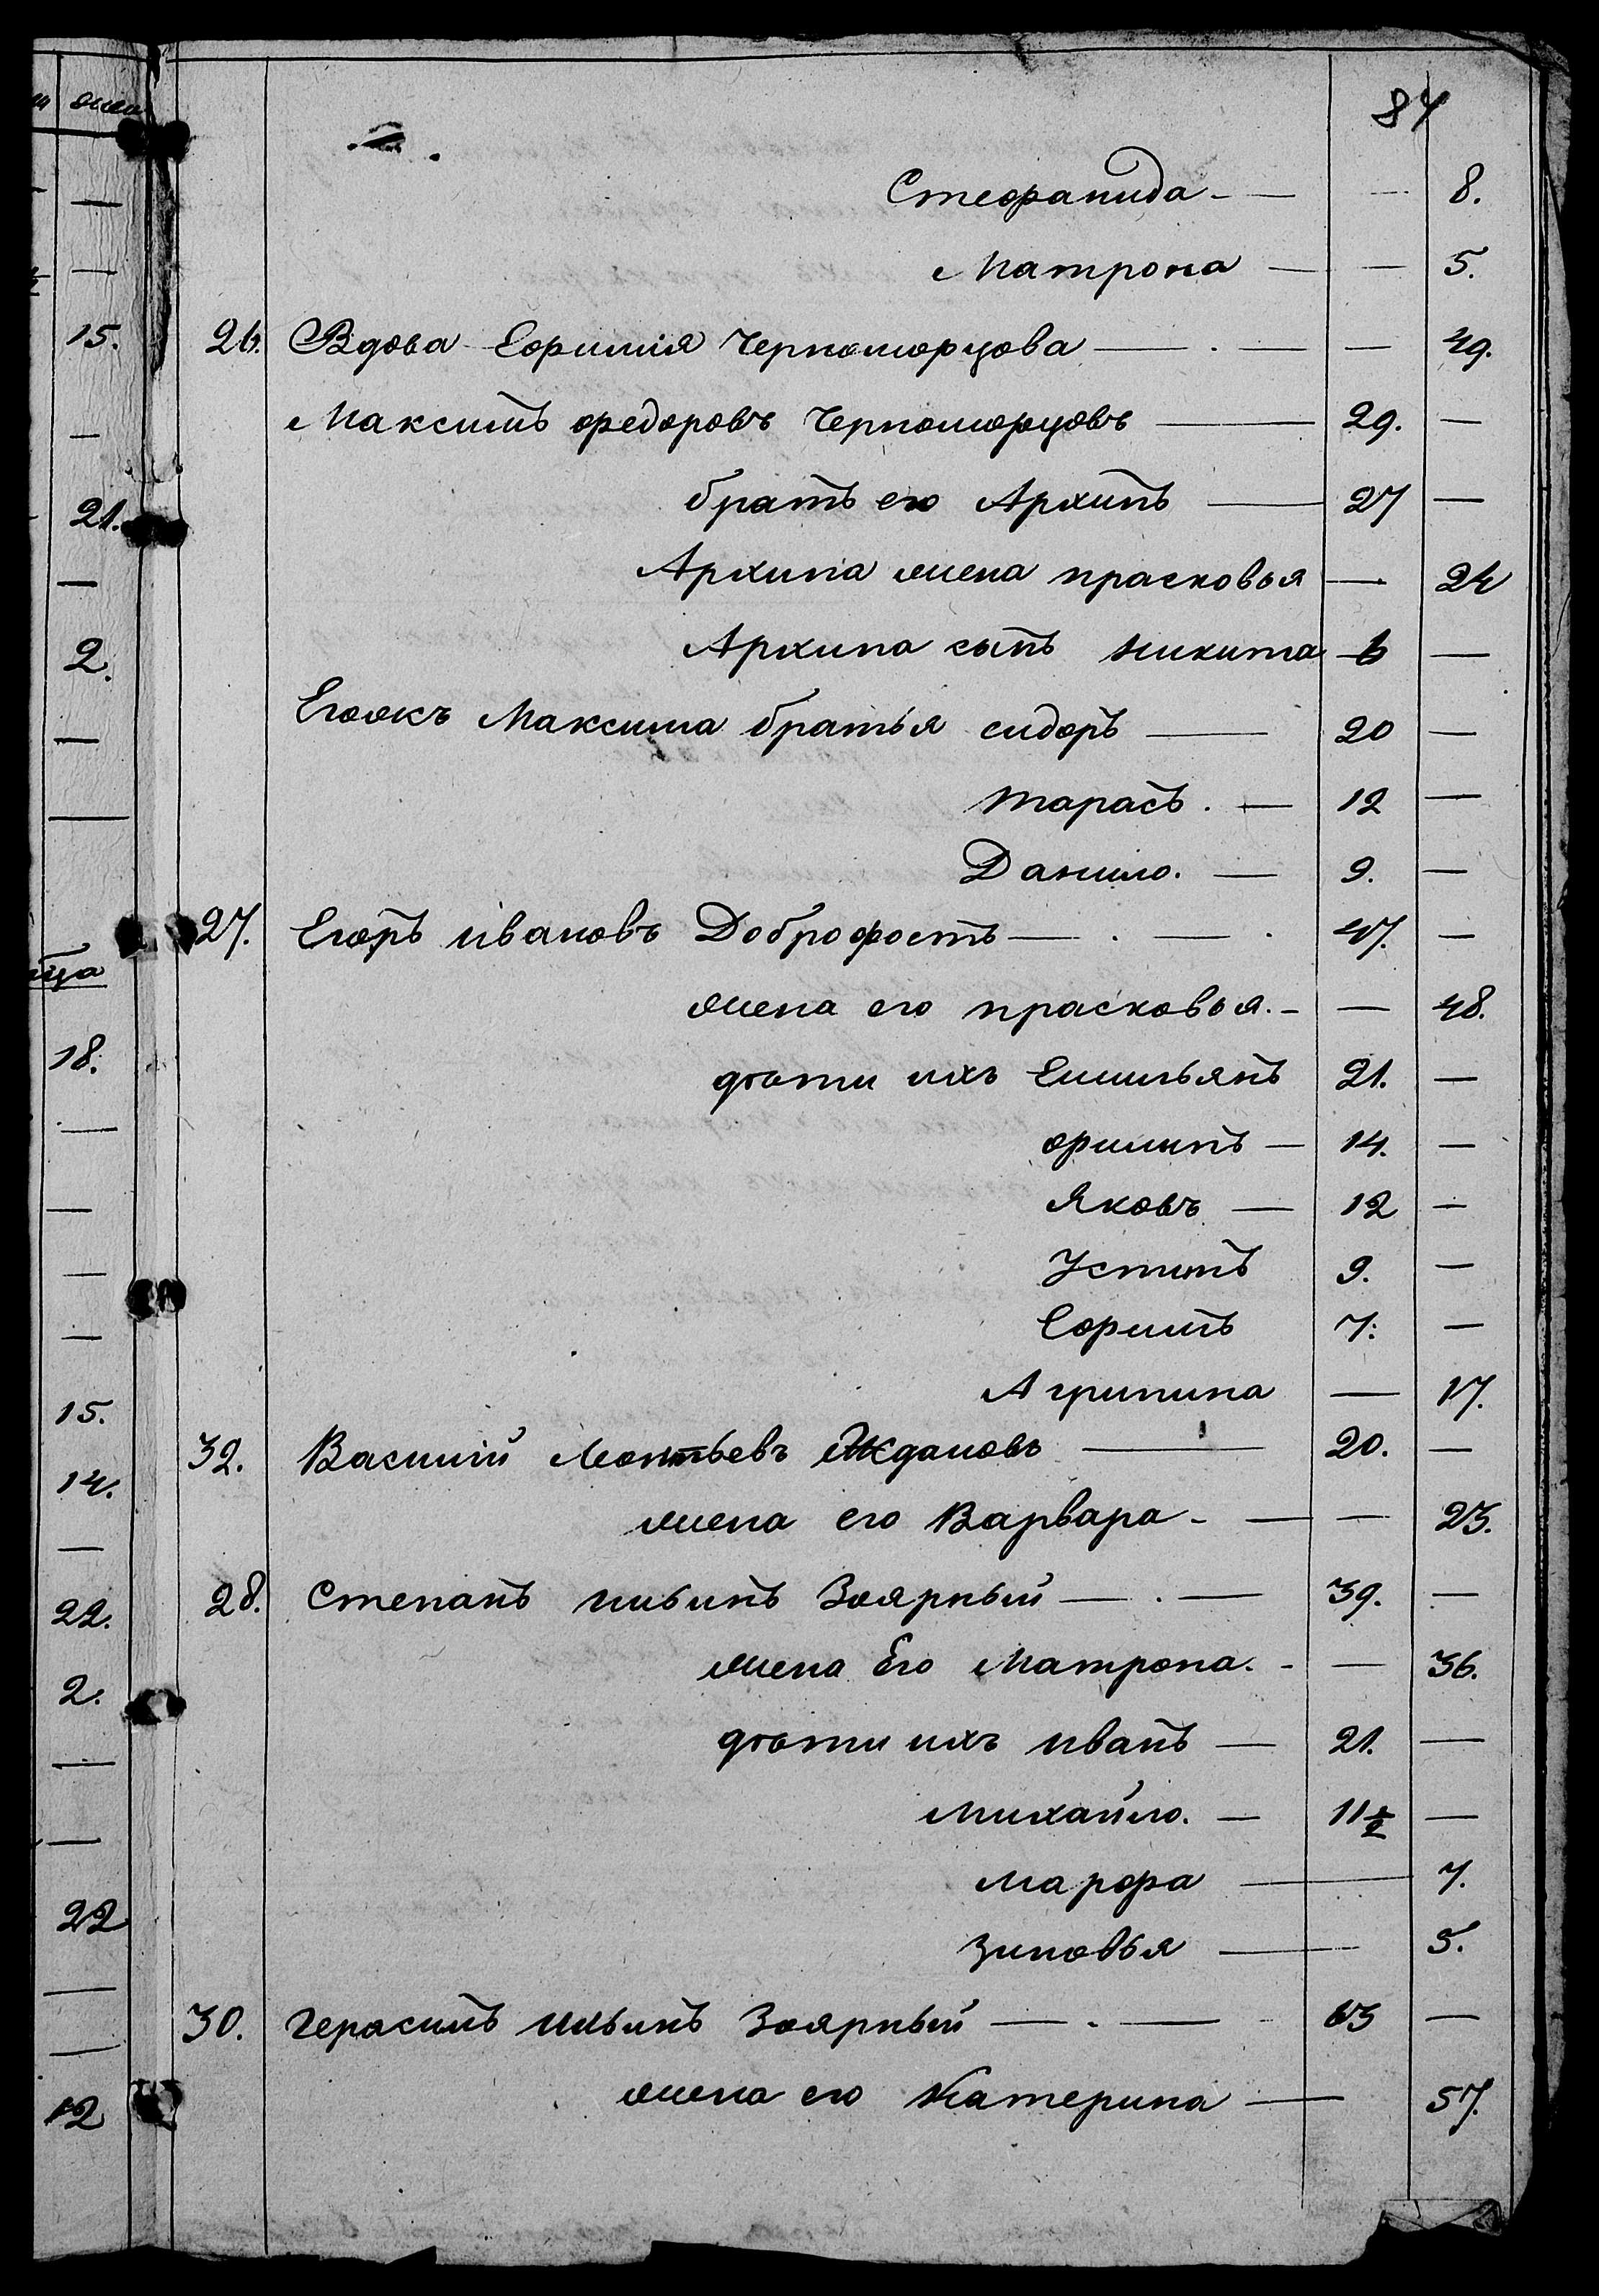 84
Стефанида — — 8.
Матрона — — 5.
26. Вдова Ефимия Черноморцова — . — — 49.
Максимъ Федоровъ Черноморцовъ — 29. —
братъ его Архипъ — 27 —
Архипа жена прасковья — 24
Архипа сынъ никита 6 —
Егожъ Максима братья сидоръ — 20 —
тарасъ. — 12 —
Данило. — 9. —
27. Егоръ ивановъ Доброфостъ — . — . 47. —
жена его прасковья. — — 48.
дѣти ихъ Емильянъ 21. —
филипъ — 14. —
Яковъ — 12 —
Устинъ 9. —
Ефимъ 7. —
Агрипина — 17.
32. Василій Леонтьевъ Ждановъ — 20. —
жена его Варвара — — 23.
28. Степанъ ильинъ Зоярный — . — 39. —
жена Его Матрона. — — 36.
дѣти ихъ иванъ — 21. —
Михайло. — 11½ —
Марфа — 7.
Зиновья — 5.
30. Герасимъ ильинъ Зоярный — . — 63 —
жена его Катерина — 57.
15.
21.
2.
18.
15.
14.
22.
2.
22
12